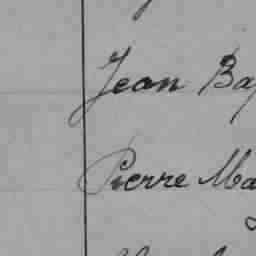 Jean Bap
Pierre Ma